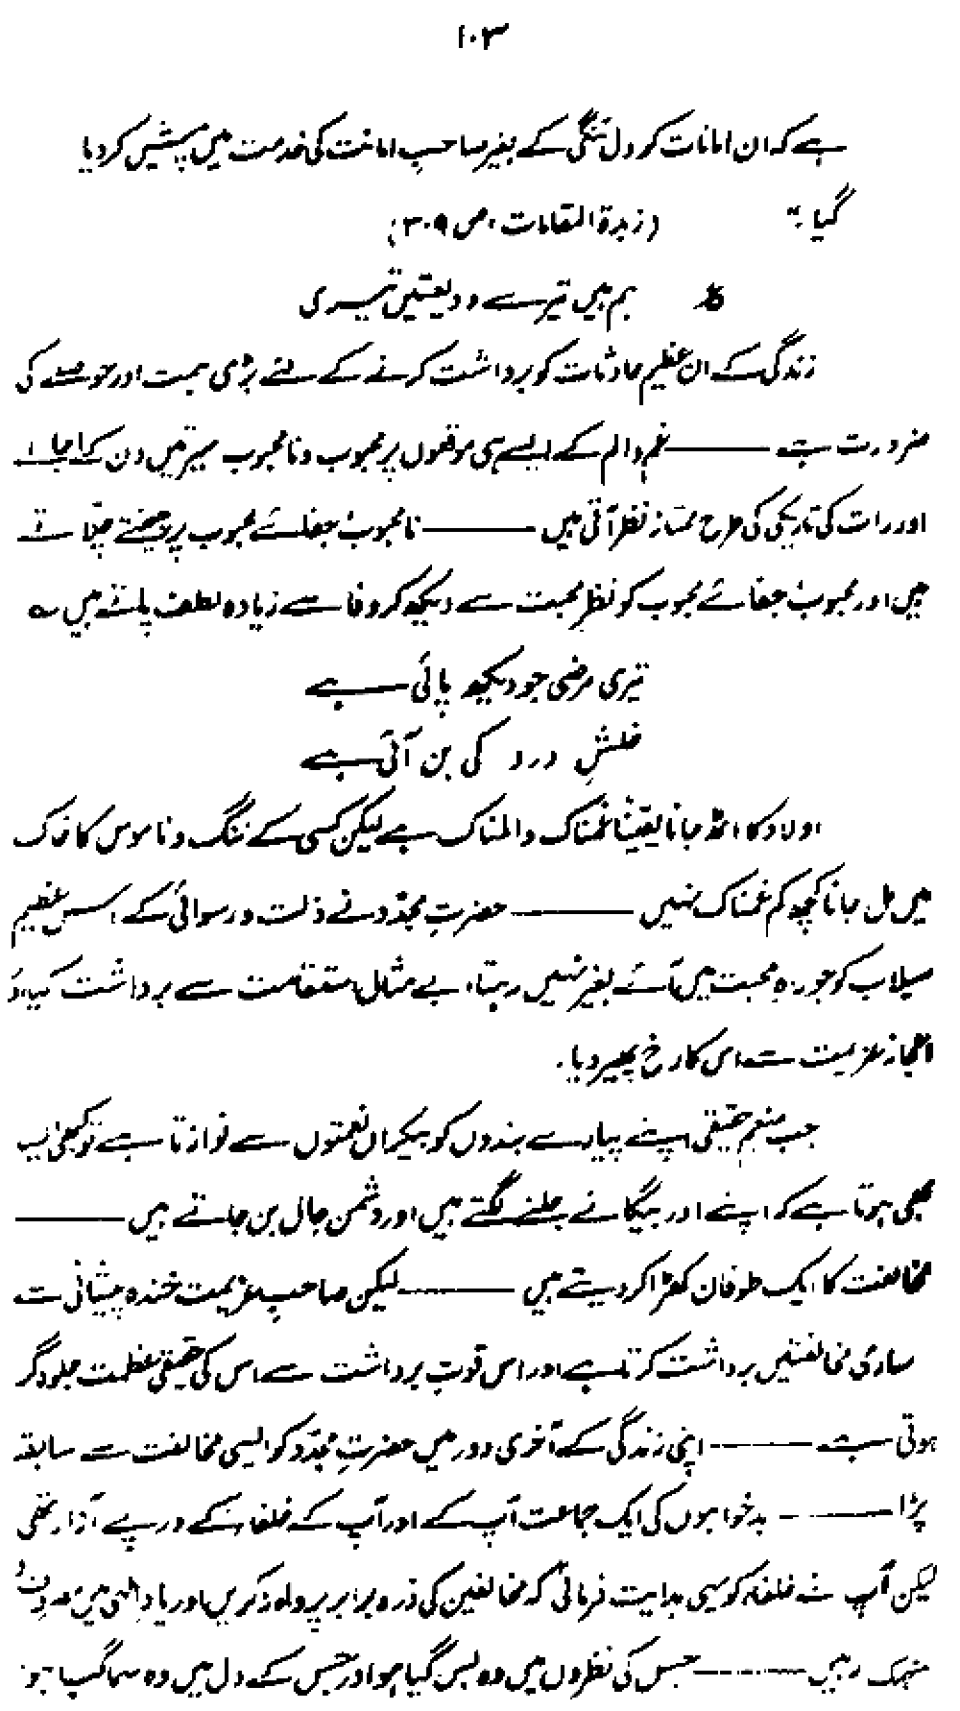 ۱۰۳
ہے کہ ان امانات کو دل تنگی کے بغیر صاحبِ امانت کی خدمت میں پیش کر دیا
گیا۔" (زبدۃ المقامات، ص ۳۰۹)
ع ہم ہیں تیرے ودیعتیں تیری
زندگی کے ان عظیم حادثات کو برداشت کرنے کے لئے بڑی ہمت اور حوصلے کی
ضرورت ہے ——— غم و الم کے ایسے ہی موقعوں پر محبوب و نامحبوب سیرتیں دن کے اجالے
اور رات کی تاریکی کی طرح ممتاز نظر آتی ہیں ——— نامحبوب جفائے محبوب پر چیختے چلاتے
ہیں اور محبوب جفائے محبوب کو نظرِ محبت سے دیکھ کر وفا سے زیادہ لطف پاتے ہیں ؎
تیری مرضی جو دیکھ پائی ہے
خلشِ درد کی بن آئی ہے
اولاد کا اٹھ جانا یقیناً غمناک و المناک ہے لیکن کسی کے ننگ و ناموس کا خاک
میں مل جانا کچھ کم غمناک نہیں ——— حضرتِ مجدّد نے ذلت و رسوائی کے اس عظیم
سیلاب کو جو رہِ محبت میں آئے بغیر نہیں رہتا، بے مثال استقامت سے برداشت کیا اور
اعجازِ عزیمت سے اس کا رخ پھیر دیا۔
جب منعمِ حقیقی اپنے پیارے بندوں کو بیکراں نعمتوں سے نوازتا ہے تو کبھی ایسا
بھی ہوتا ہے کہ اپنے اور بیگانے جلنے لگتے ہیں اور دشمن جاں بن جاتے ہیں ———
مخالفت کا ایک طوفان کھڑا کر دیتے ہیں ——— لیکن صاحبِ عزیمت خندہ پیشانی سے
ساری مخالفتیں برداشت کرتا ہے اور اس قوتِ برداشت سے اس کی حقیقی عظمت جلوہ گر
ہوتی ہے ——— اپنی زندگی کے آخری دور میں حضرتِ مجدّد کو ایسی مخالفت سے سابقہ
پڑا ——— بدخواہوں کی ایک جماعت آپ کے اور آپ کے خلفاء کے درپے آزار تھی
لیکن آپ نے خلفاء کو یہی ہدایت فرمائی کہ مخالفین کی ذرہ برابر پرواہ نہ کریں اور یادِ الٰہی میں
منہمک رہیں ——— جس کی نظروں میں وہ بس گیا ہو اور جس کے دل میں وہ سما گیا ہو